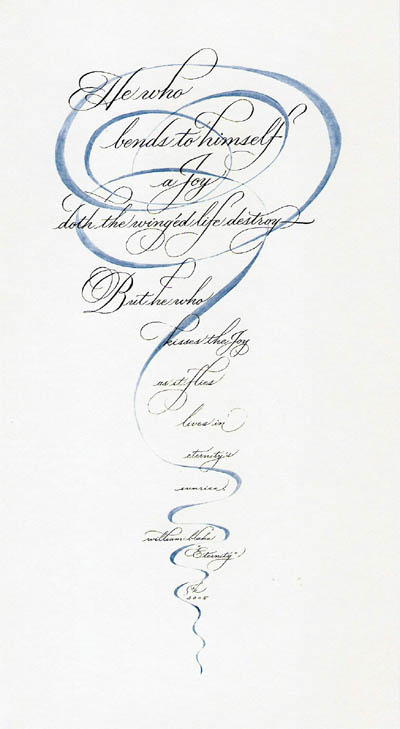 He who
bends to himself
a Joy
doth the winged life destroy
But he who
kisses the Joy
as it flies
lives in
eternity's
sunrise.
william blake
"Eternity"
2005